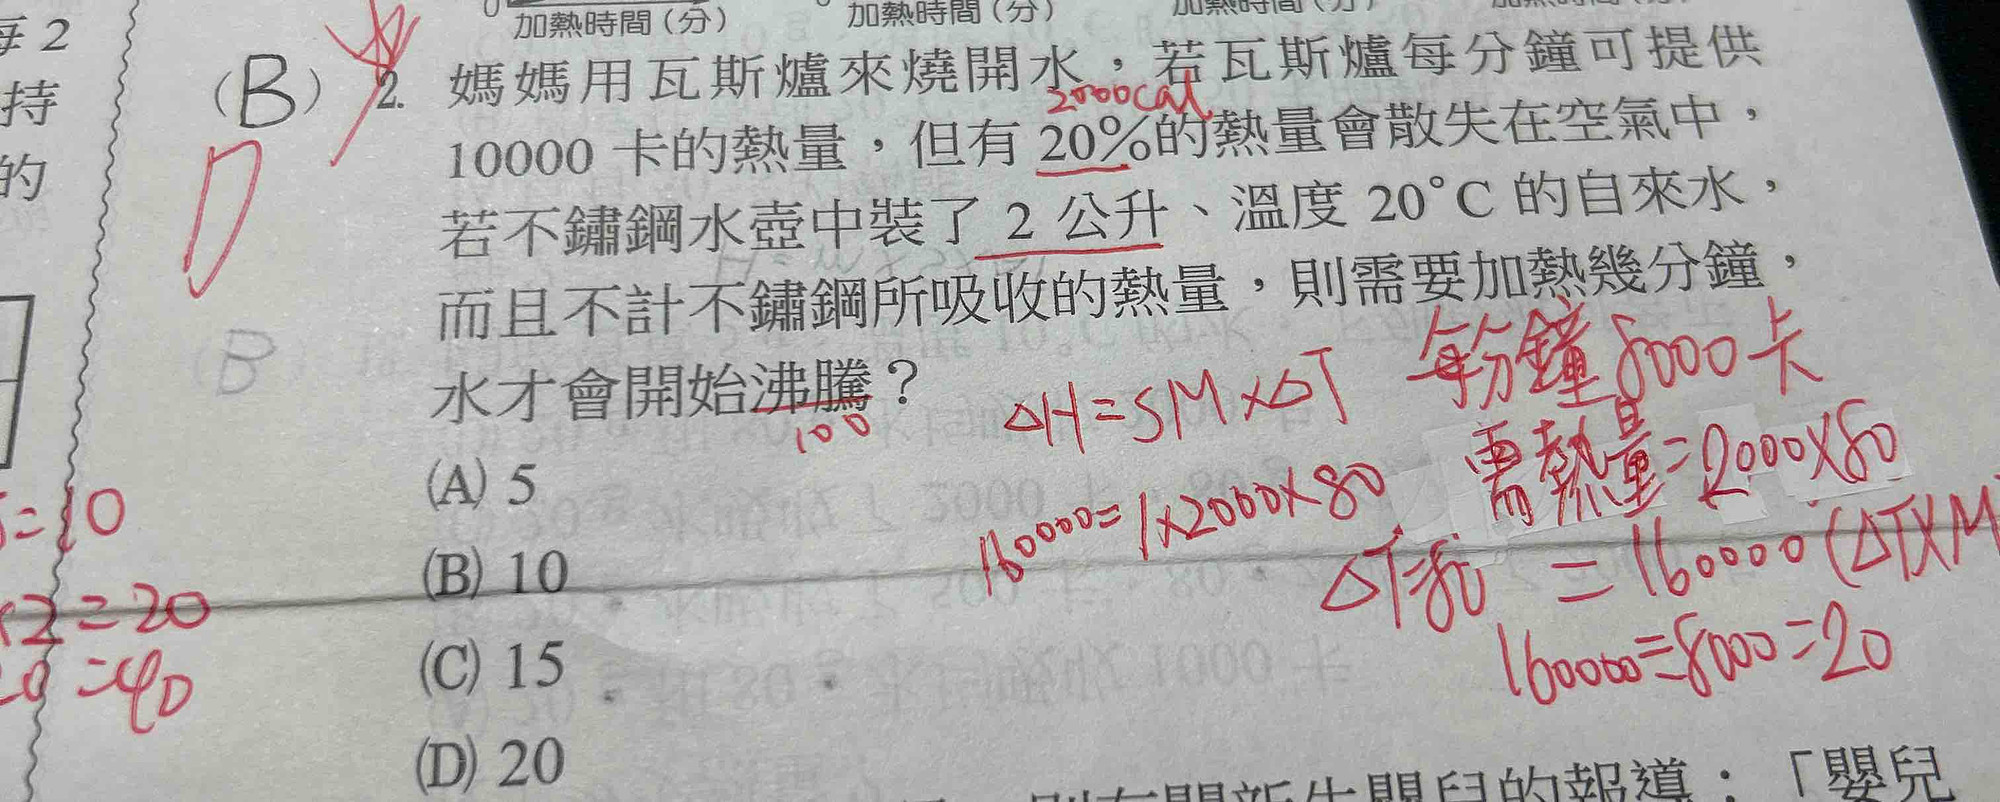 加熱時間(分)
加熱時間(分)
加熱時間(分)
每2
持
的
(B) 2. 媽媽用瓦斯爐來燒開水,若瓦斯爐每分鐘可提供
2000cal
10000 卡的熱量,但有 20%的熱量會散失在空氣中,
D
若不鏽鋼水壺中裝了 2 公升、溫度 20°C 的自來水,
而且不計不鏽鋼所吸收的熱量,則需要加熱幾分鐘,
水才會開始沸騰?
100
B
每分鐘8000卡
△H=SM×△T
需熱量=2000×80
160000=1×2000×80
△T=80
=160000(△T×M
160000=8000=20
(A) 5
(B) 10
(C) 15
(D) 20
=10
×2=20
=40
的報導:「嬰兒